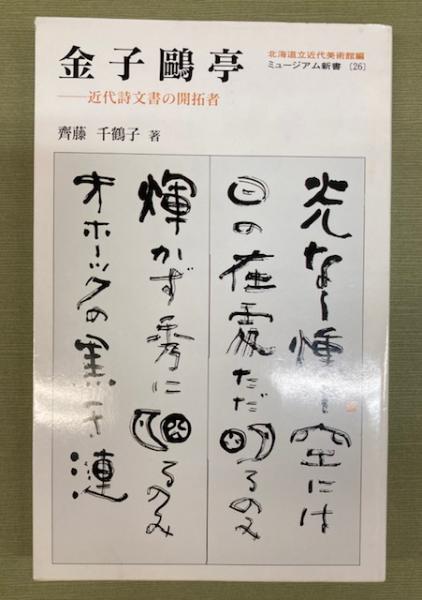 金子鷗亭
北海道立近代美術館編
ミュージアム新書 〔26〕
——近代詩文書の開拓者
齊藤 千鶴子 著
光なく 空には
日の在處ただ明るのみ
輝かず秀に るのみ
オホーツクの黒き漣